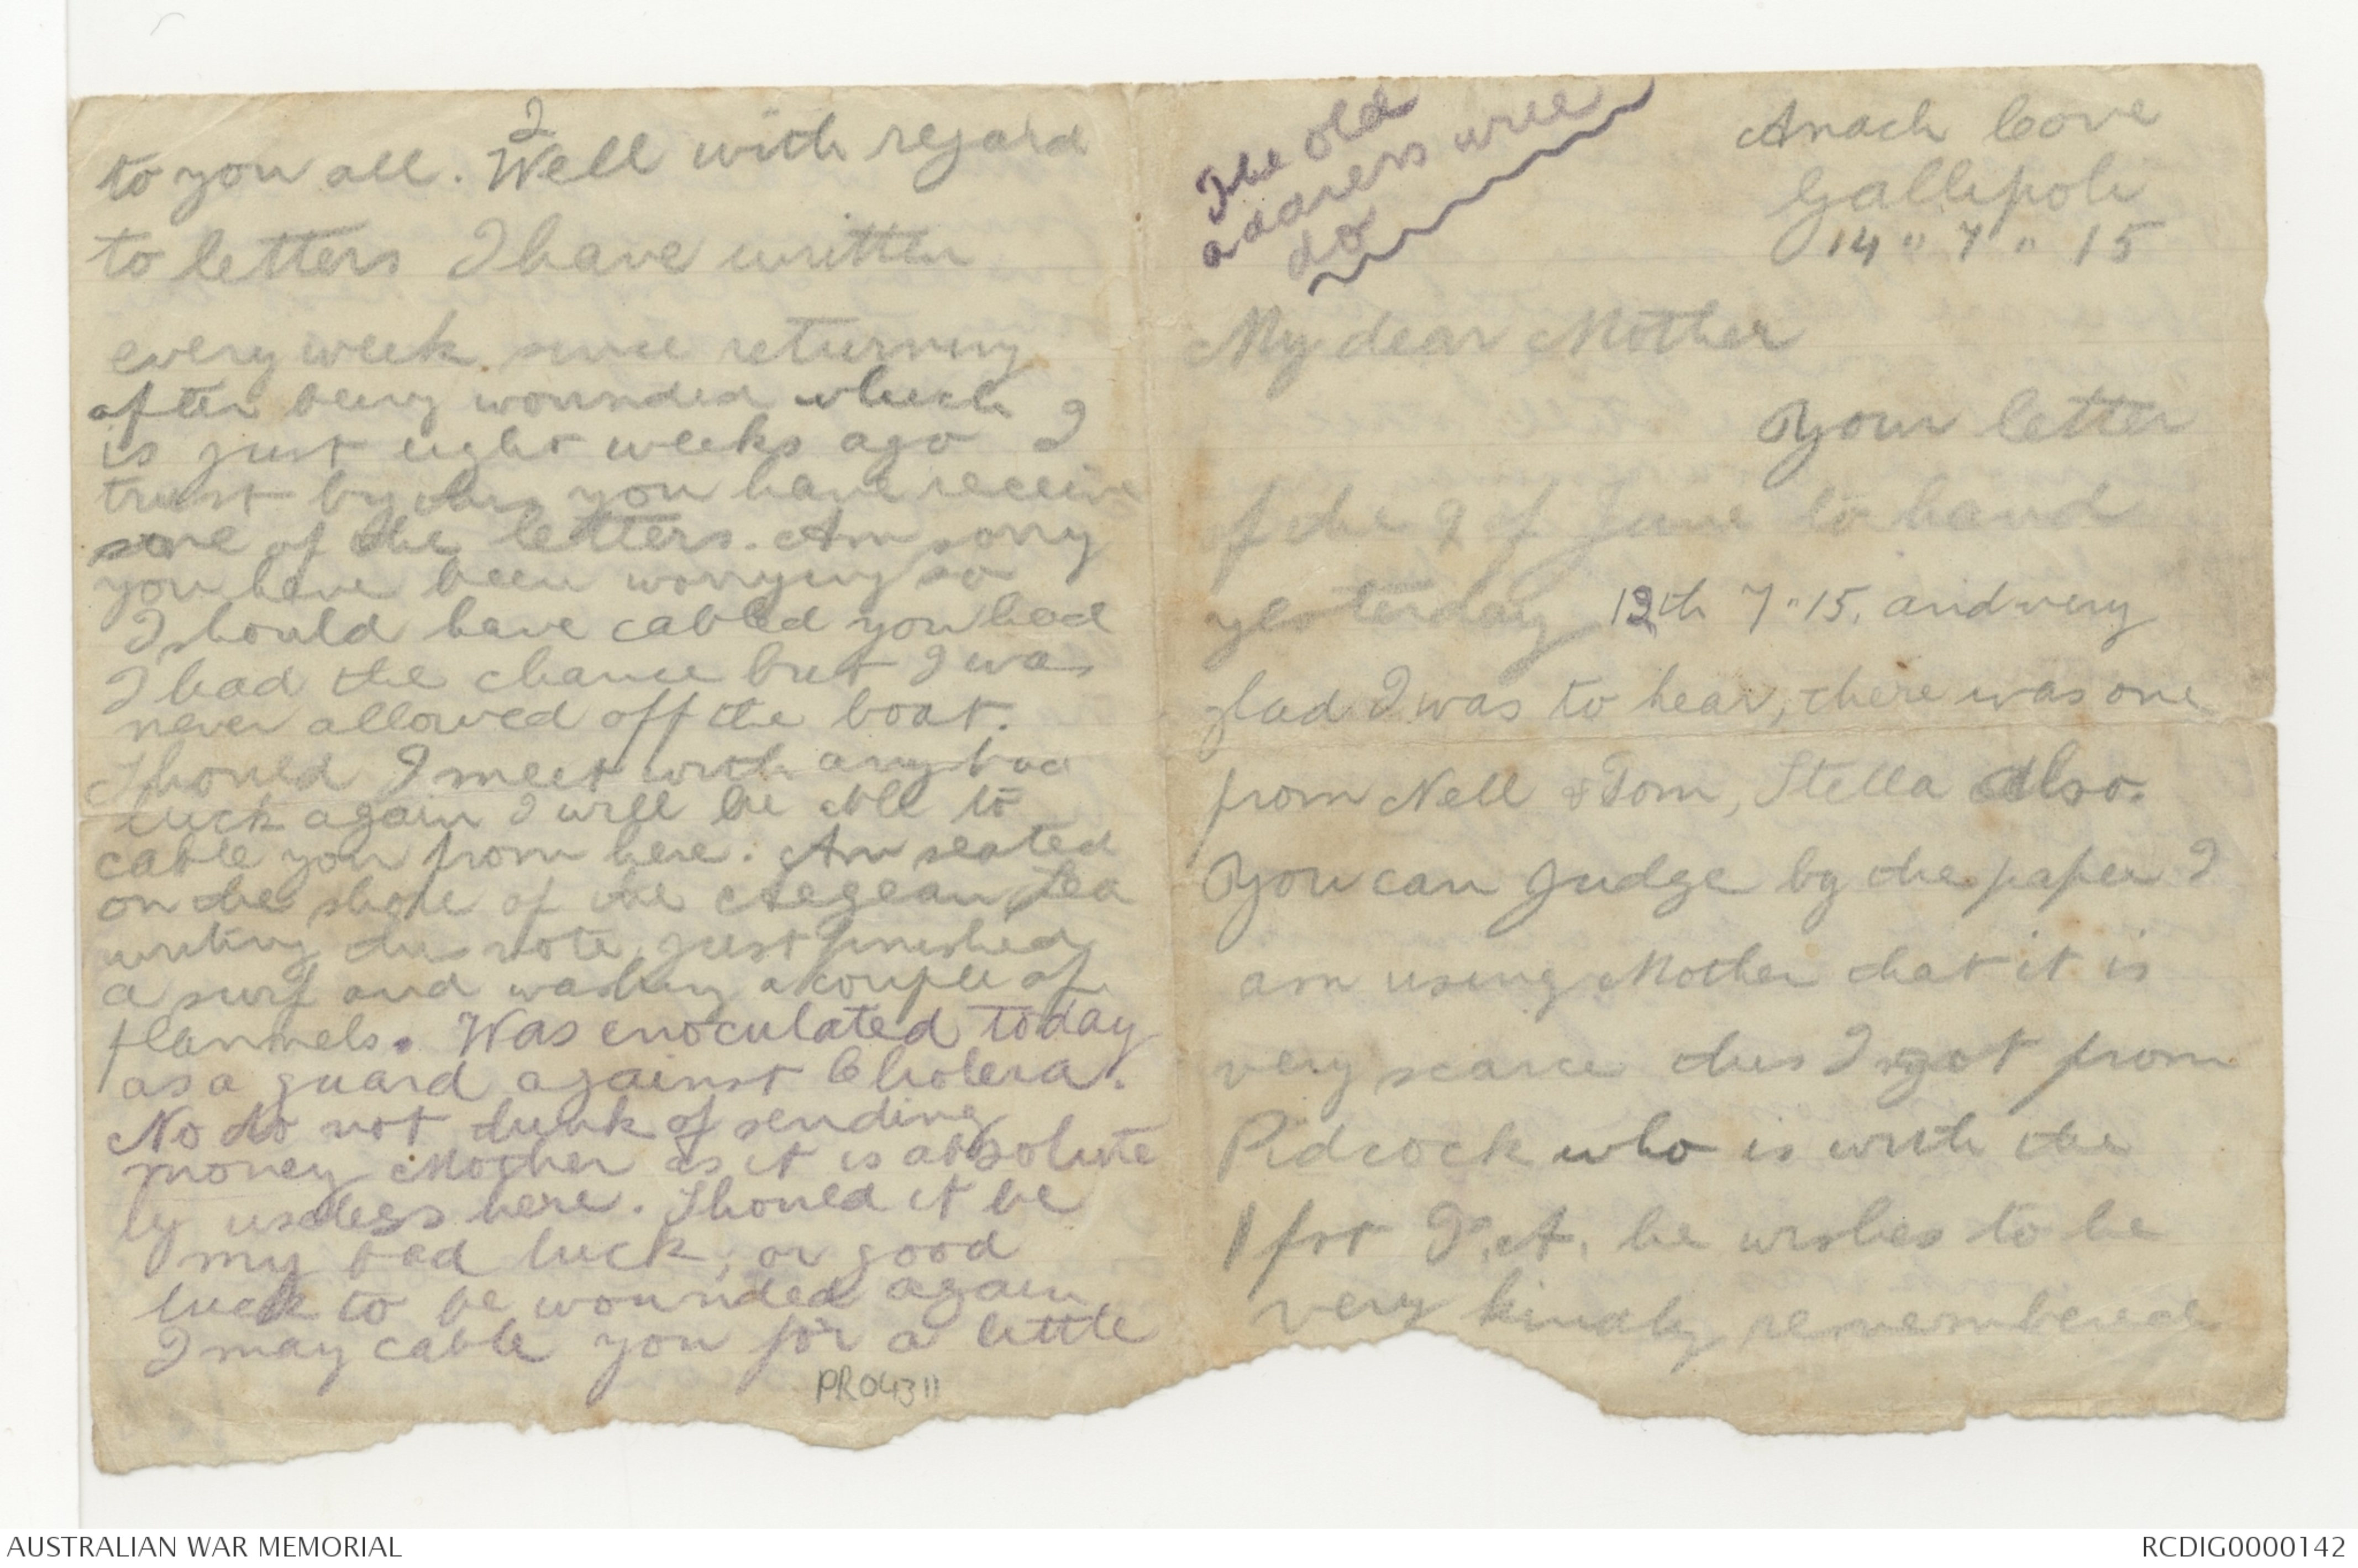 The old
address will
do
Anach Cove
Gallipoli
14 " 7 " 15
My dear Mother
Your letter
of the 9 of June to hand
yesterday 12th 7"15. and very
glad I was to hear, there was one
from Nell & Tom, Stella also.
You can judge by the paper I
am using Mother that it is
very scarce this I got from
Pidcock who is with the
1 fst F.A. he wishes to be
very kindly remembered
2
to you all. Well with regard
to letters I have written
every week since returning
after being wounded which
is just eight weeks ago I
trust by this you have receive
some of the letters. Am sorry
you have been worrying so
I should have cabled you had
I had the chance but I was
never allowed off the boat.
Should I meet with any bad
luck again I will be able to
cable you from here. Am seated
on the shore of the Aegean Sea
writing this note, just finished
a surf and washing a couple of
flannels. Was enoculated today
as a guard against Cholera.
No do not think of sending
money Mother as it is absolute
ly useless here. Should it be
my bad luck, or good
luck to be wounded again
I may cable you for a little
PR04311
AUSTRALIAN WAR MEMORIAL
RCDIG0000142